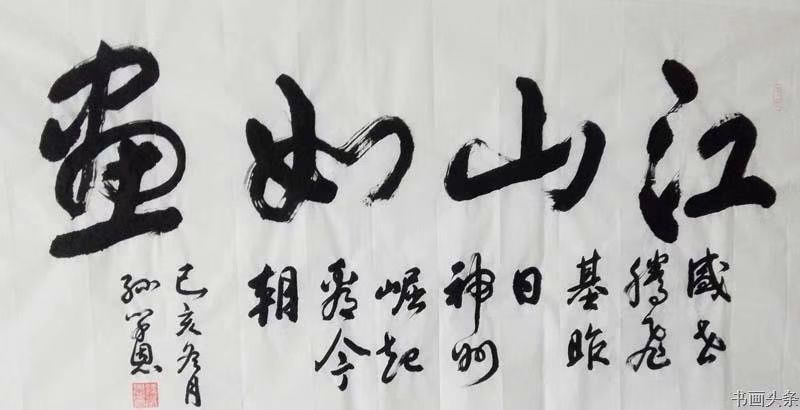 江山如画
盛世
腾飞
基昨
日
神州
崛起
看今
朝
己亥冬月
孙学恩
书画头条